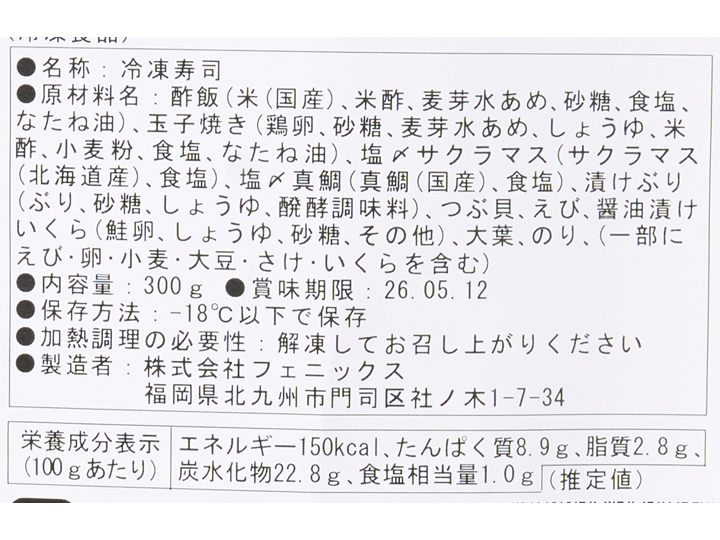 (冷凍食品)
●名称：冷凍寿司
●原材料名：酢飯(米(国産)、米酢、麦芽水あめ、砂糖、食塩、
なたね油)、玉子焼き(鶏卵、砂糖、麦芽水あめ、しょうゆ、米
酢、小麦粉、食塩、なたね油)、塩〆サクラマス(サクラマス
(北海道産)、食塩)、塩〆真鯛(真鯛(国産)、食塩)、漬けぶり
(ぶり、砂糖、しょうゆ、醗酵調味料)、つぶ貝、えび、醤油漬け
いくら(鮭卵、しょうゆ、砂糖、その他)、大葉、のり、(一部に
えび・卵・小麦・大豆・さけ・いくらを含む)
●内容量：300g ●賞味期限：26.05.12
●保存方法：-18℃以下で保存
●加熱調理の必要性：解凍してお召し上がりください
●製造者：株式会社フェニックス
福岡県北九州市門司区社ノ木1-7-34
栄養成分表示
(100gあたり)
エネルギー150kcal、たんぱく質8.9g、脂質2.8g、
炭水化物22.8g、食塩相当量1.0g(推定値)